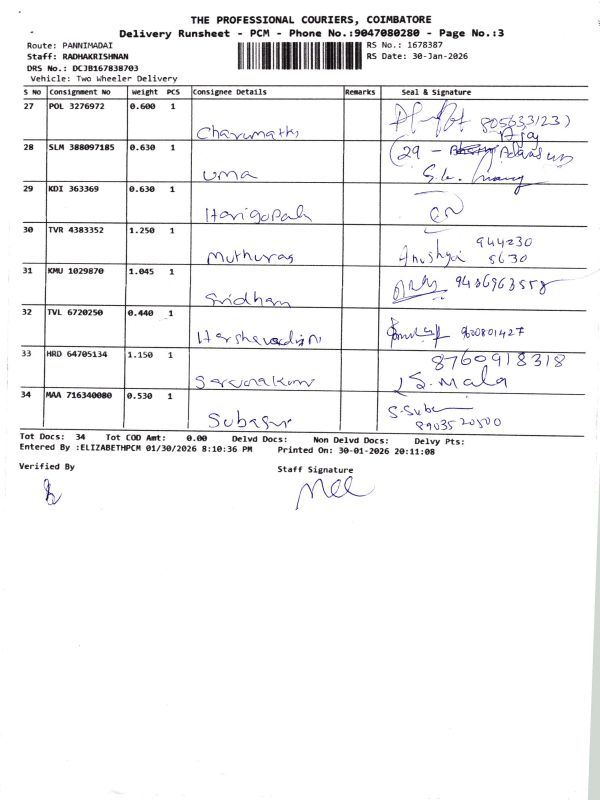 THE PROFESSIONAL COURIERS, COIMBATORE
Delivery Runsheet - PCM - Phone No.:9047080280 - Page No.:3
Route: PANNIMADAI
RS No.: 1678387
Staff: RADHAKRISHNAN
RS Date: 30-Jan-2026
DRS No.: DCJB167838703
Vehicle: Two Wheeler Delivery
S No Consignment No Weight PCS Consignee Details Remarks Seal & Signature
27 POL 3276972 0.600 1
Charumathi 805633123)
Ajay
28 SLM 388097185 0.630 1 (29 -
Uma
29 KDI 363369 0.630 1
Harigopal
30 TVR 4383352 1.250 1 944230
Muthuraj 5630
31 KMU 1029870 1.045 1 9486963558
Sridharn
32 TVL 6720250 0.440 1
Harshavardini 960801427
33 HRD 64705134 1.150 1 8760918318
Saravanakumar S. Mala
34 MAA 716340080 0.530 1
Subasri 8903520500
Tot Docs: 34 Tot COD Amt: 0.00 Delvd Docs: Non Delvd Docs: Delvy Pts:
Entered By :ELIZABETHPCM 01/30/2026 8:10:36 PM Printed On: 30-01-2026 20:11:08
Verified By
Staff Signature